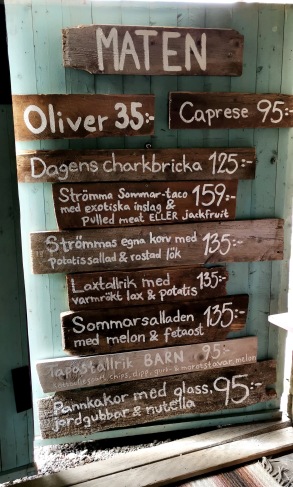 MATEN
Oliver 35:-
Caprese 95:-
Dagens charkbricka 125:-
Strömma Sommar-taco 159:-
med exotiska inslag &
pulled meat ELLER jackfruit
Strömmas egna korv med 135:-
potatissallad & rostad lök
Laxtallrik med 135:-
varmrökt lax & potatis
Sommarsalladen 135:-
med melon & fetaost
Tapastallrik BARN 95:-
chips, dipp, gurk- & morotsstavar, melon
Pannkakor med glass, 95:-
jordgubbar & nutella